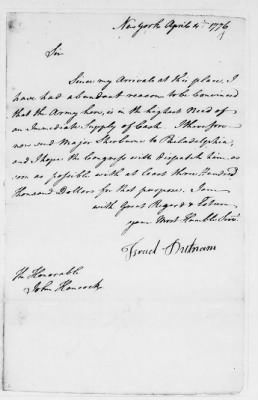 New York April 4th 1776
Sir
Since my Arrival at this place, I
have had abundant reason to be convinced
that the Army here, is in the highest Need of
an Immediate Supply of Cash. I therefore
now send Major Sherburne to Philadelphia,
and I hope the Congress will dispatch him, as
soon as possible with at least three Hundred
thousand Dollars for that purpose. I am
with Great Regard & Esteem
your Most Humble Servt
Israel Putnam
The Honorable
John Hancock